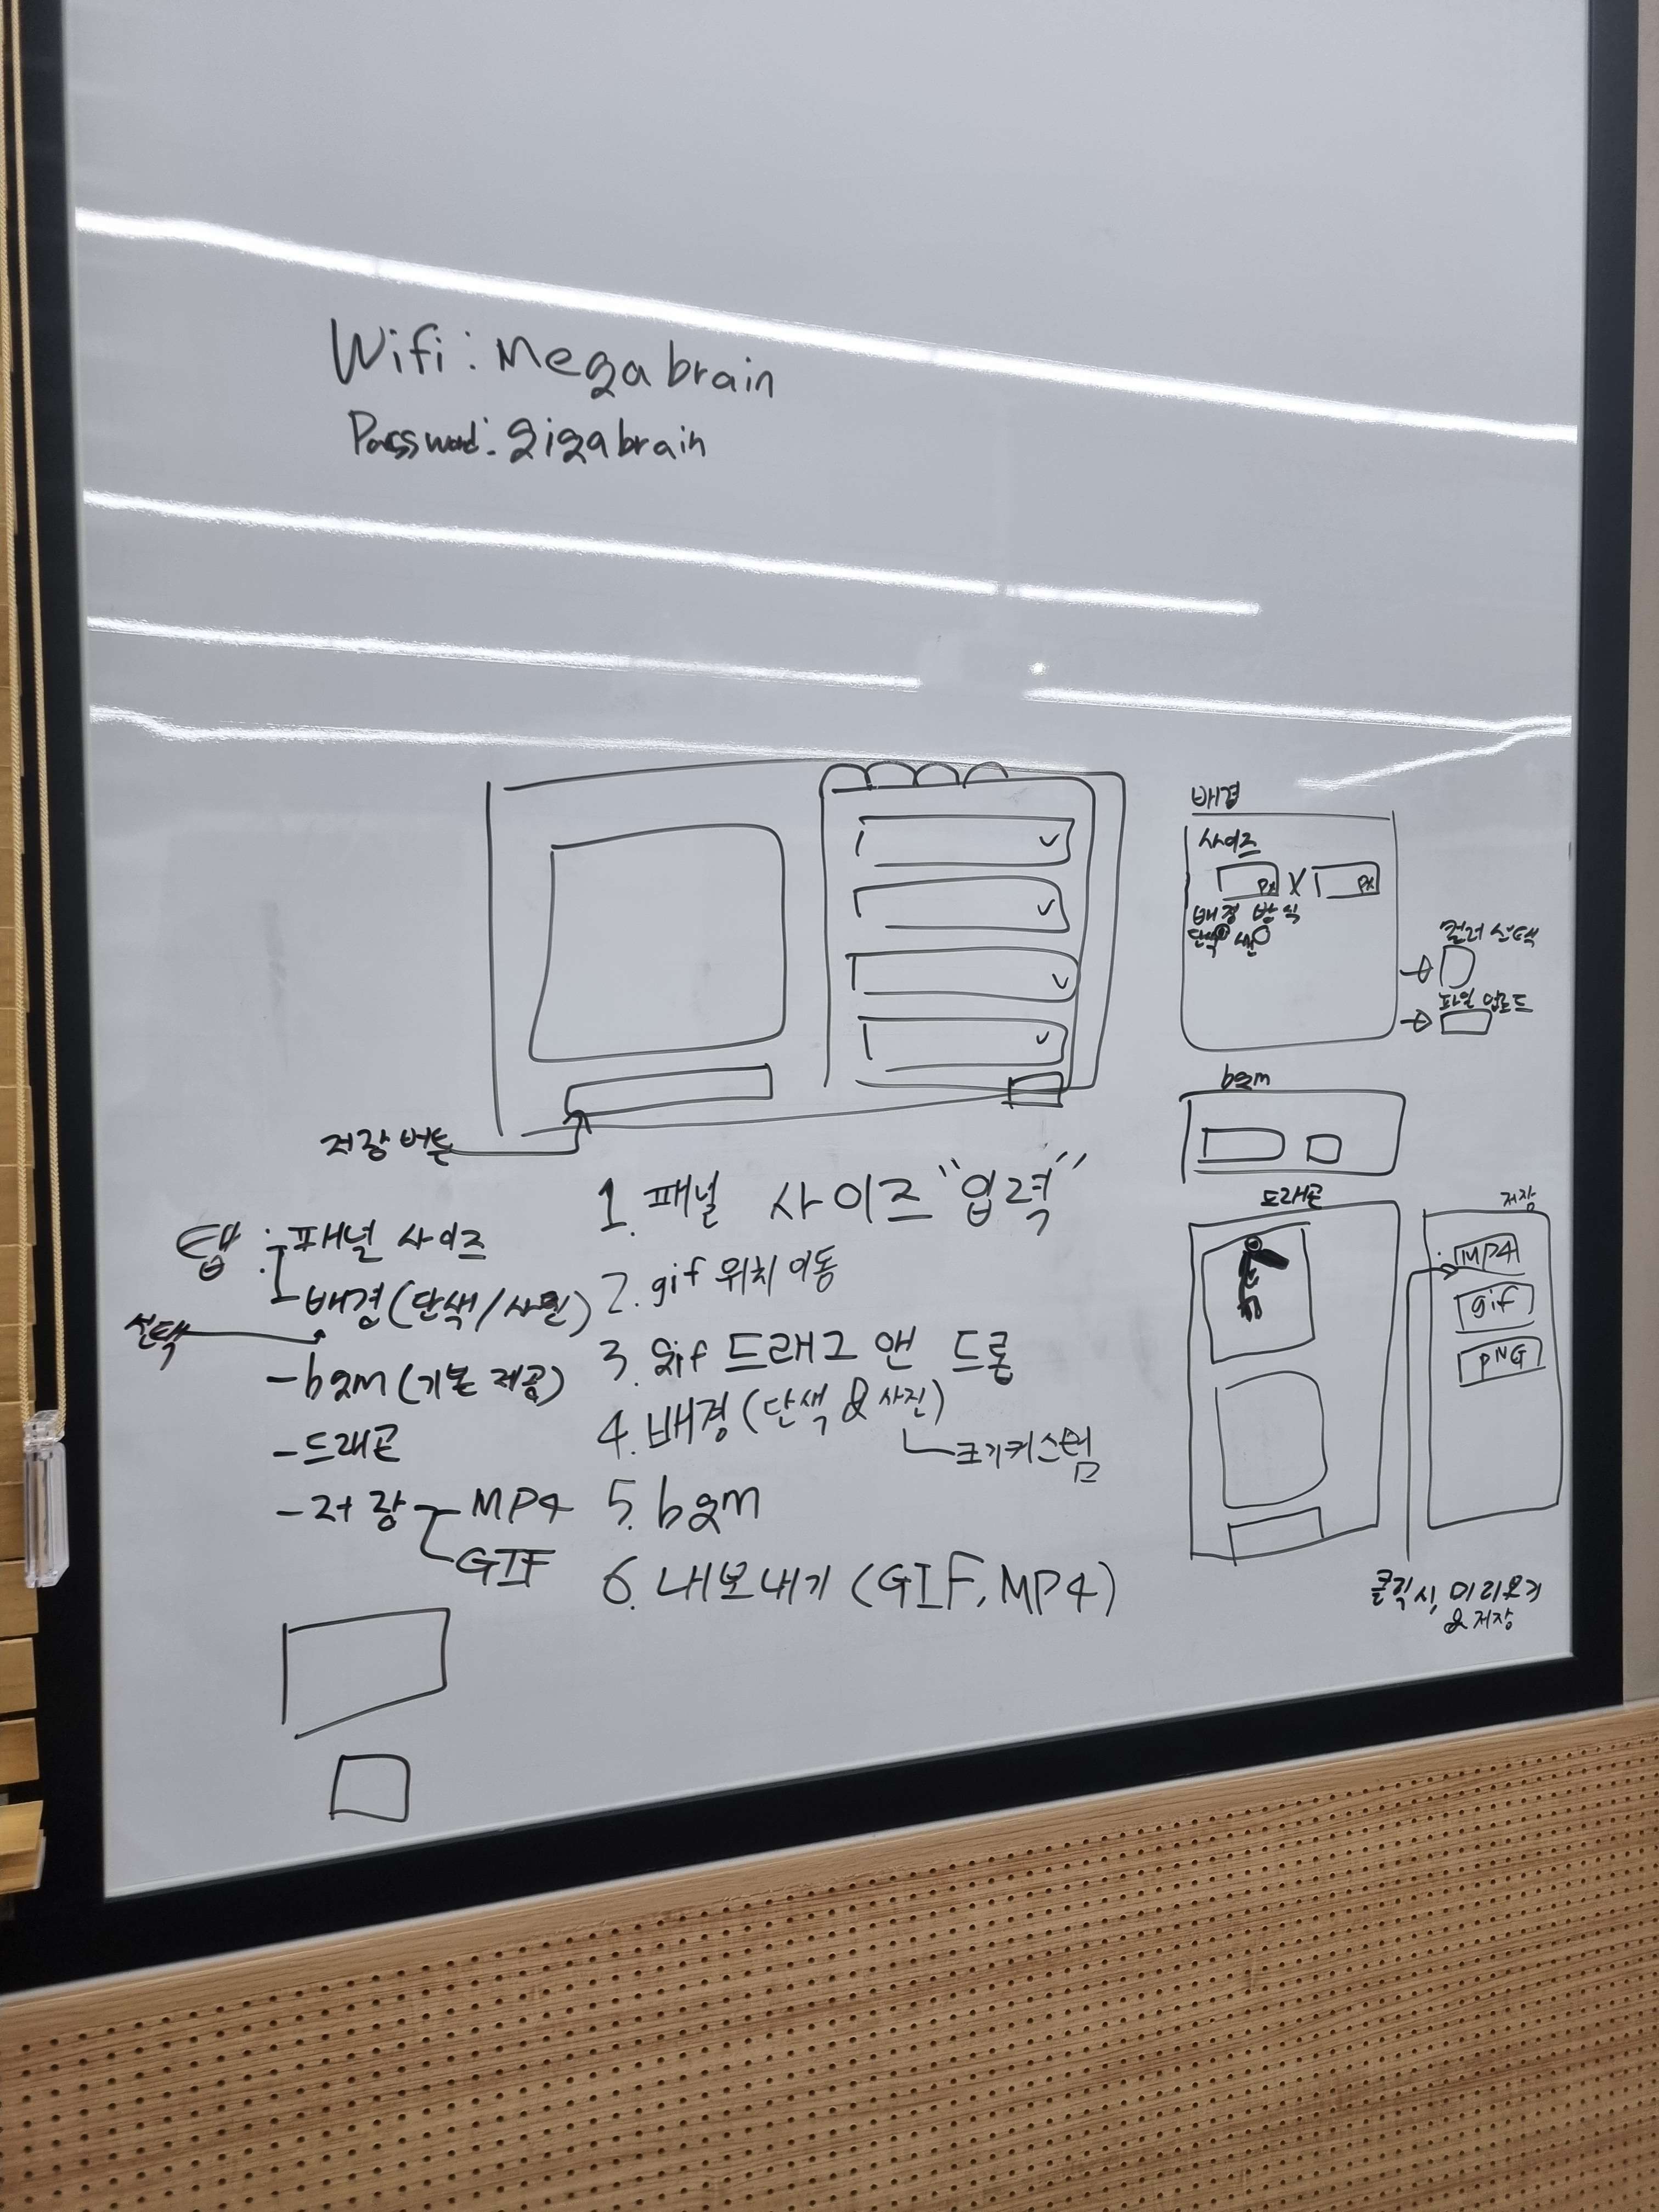 Wifi: Megabrain
Password: gigabrain
저장 버튼
탭 : 패널 사이즈
- 배경 (단색/사진)
선택
- bgm (기본 제공)
- 드래곤
- 저장 MP4
GIF
1. 패널 사이즈 "입력"
2. gif 위치 이동
3. gif 드래그 앤 드롭
4. 배경 (단색 & 사진)
크기커스텀
5. bgm
6. 내보내기 (GIF, MP4)
배경
사이즈
px X px
배경 방식
단색
컬러 선택
파일 업로드
bgm
드래곤
저장
MP4
gif
PNG
클릭 시, 미리보기
& 저장